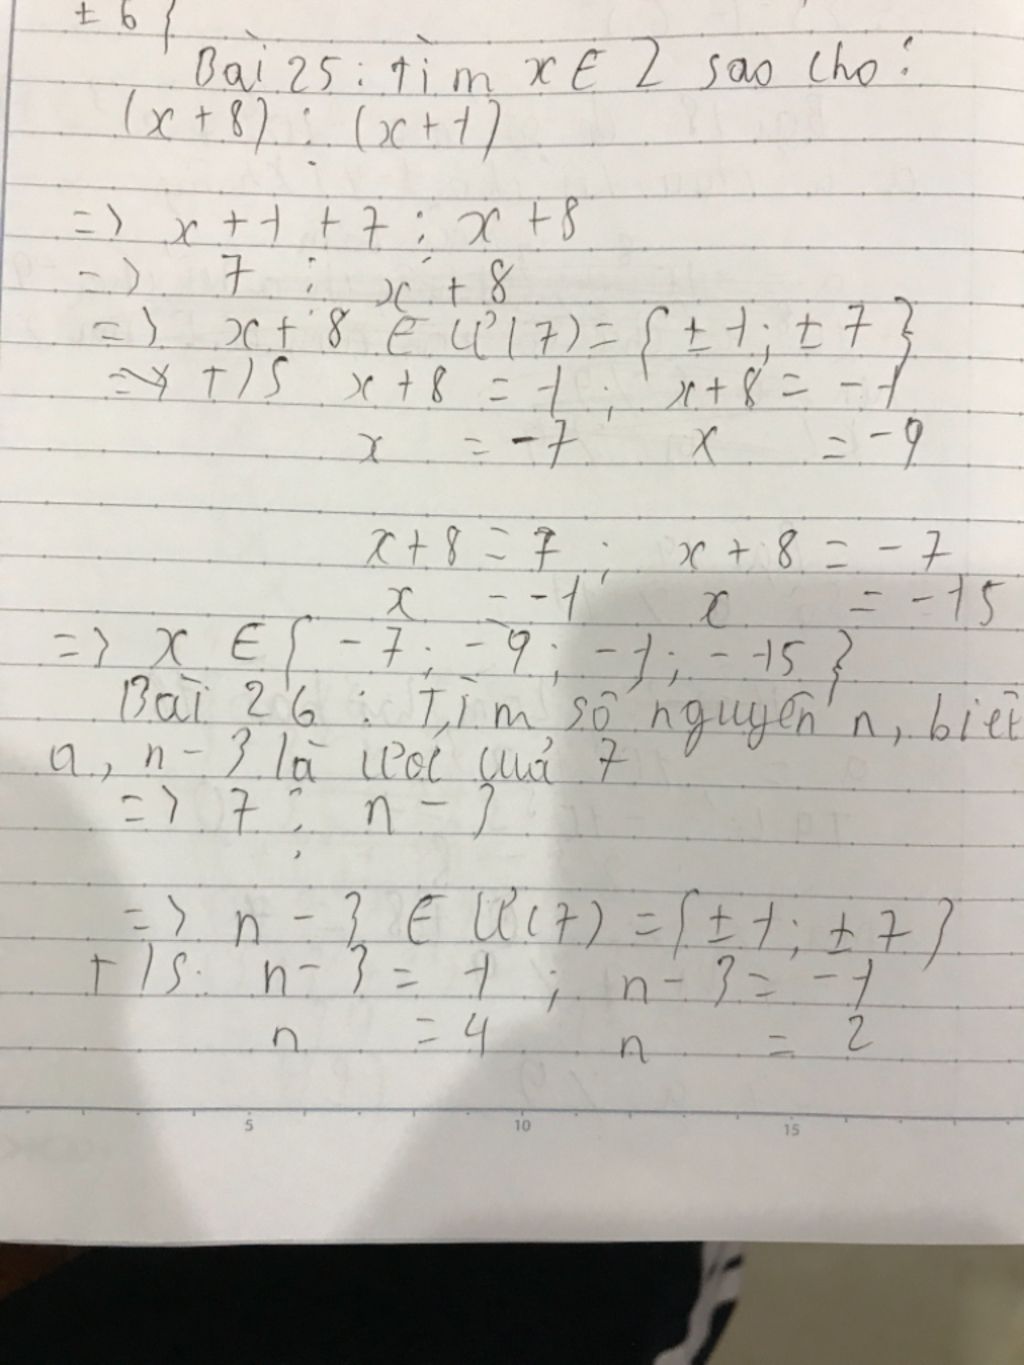 ± 6 }
Bài 25 : tìm x ∈ Z sao cho :
(x + 8) ⋮ (x + 1)
=> x + 1 + 7 ⋮ x + 8
=> 7 ⋮ x + 8
=> x + 8 ∈ Ư(7) = { ± 1 ; ± 7 }
=> + 15 x + 8 = 1 ; x + 8 = - 1
x = - 7 x = - 9
x + 8 = 7 ; x + 8 = - 7
x = - 1 x = - 15
=> x ∈ { - 7 ; - 9 ; - 1 ; - 15 }
Bài 26 : Tìm số nguyên n, biết
a, n - 3 là ước của 7
=> 7 ⋮ n - 3
=> n - 3 ∈ Ư(7) = { ± 1 ; ± 7 }
+ 15: n - 3 = 1 ; n - 3 = - 1
n = 4 n = 2
5 10 15